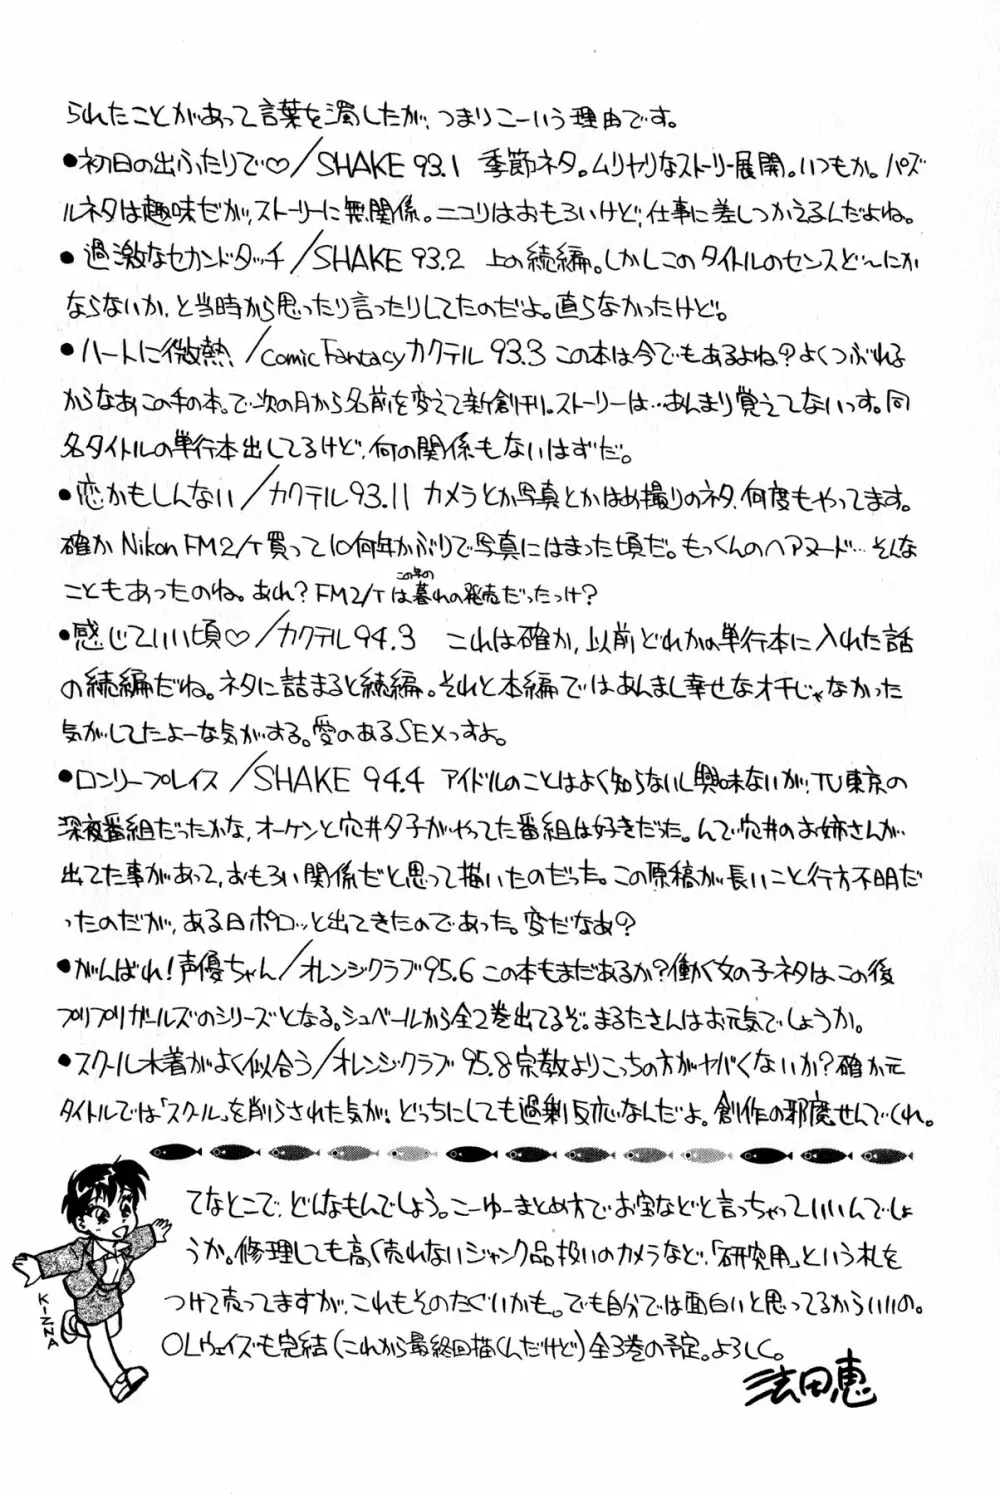 られたことがあって言葉を濁したが、つまりこーいう理由です。
●初日の出ふたりで♡/SHAKE 93.1 季節ネタ。ムリヤリなストーリー展開。いつもか。パズ
ルネタは趣味だが、ストーリーに無関係。ニコリはおもろいけど、仕事に差しつかえるんだよね。
●過激なセカンドタッチ/SHAKE 93.2 上の続編。しかしこのタイトルのセンスど〜にか
ならないか、と当時から思ったり言ったりしてたのだよ。直らなかったけど。
●ハートに微熱/comic Fantacyカクテル 93.3 この本は今でもあるよね?よくつぶれる
からなあこの手の本。で次の月から名前を変えて新創刊。ストーリーは…あんまり覚えてないっす。同
名タイトルの単行本出してるけど、何の関係もないはずだ。
●恋かもしんない/カクテル93.11 カメラとか写真とかはめ撮りのネタ、何度もやってます。
確か Nikon FM2/T 買って10何年かぶりで写真にはまった頃だ。もっくんのヘアヌード…そんな
こともあったのね。あれ?FM2/Tはこの年の暮れの発売だったっけ?
●感じていい頃♡/カクテル94.3 これは確か、以前どれかの単行本に入れた話
の続編だね。ネタに詰まると続編。それと本編ではあんまし幸せなオチじゃなかった
気がしてたよーな気がする。愛のあるSEXっすよ。
●ロンリープレイス/SHAKE 94.4 アイドルのことはよく知らないし興味ないが、TV東京の
深夜番組だったかな、オーケンと穴井夕子がやってた番組は好きだった。んで穴井のお姉さんが
出てた事があって、おもろい関係だと思って描いたのだった。この原稿が長いこと行方不明だ
ったのだが、ある日ポロッと出てきたのであった。変だなあ?
●がんばれ!声優ちゃん/オレンジクラブ95.6 この本もまだあるか?働く女の子ネタは、この後
プリプリガールズのシリーズとなる。シュベールから全2巻出てるぞ。まるたさんはお元気でしょうか。
●スクール水着がよく似合う/オレンジクラブ 95.8 宗教よりこっちの方がヤバくないか?確か元
タイトルでは「スクール」を削らされた気が、どっちにしても過剰反応なんだよ。創作の邪魔せんでくれ。
てなとこで、どんなもんでしょう。こーゆーまとめ方でお宝などと言っちゃっていいんでしょ
うか。修理しても高く売れないジャンク品扱いのカメラなど、「研究用」という札を
つけて売ってますが、これもそのたぐいかも。でも自分では面白いと思ってるからいいの。
OLウェイズも完結(これから最終回描くんだけど)全3巻の予定。よろしく。
法田恵
KIZNA